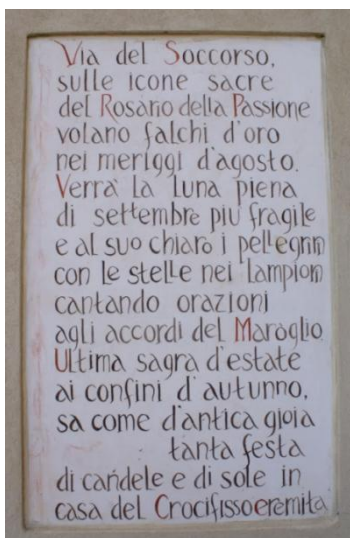 Via del Soccorso,
sulle icone sacre
del Rosario della Passione
volano falchi d'oro
nei meriggi d'agosto.
Verrà la luna piena
di settembre più fragile
e al suo chiaro i pellegrini
con le stelle nei lampioni
cantando orazioni
agli accordi del Maroglio.
Ultima sagra d'estate
ai confini d'autunno,
sa come d'antica gioia
tanta festa
di candele e di sole in
casa del Crocifisso eremita